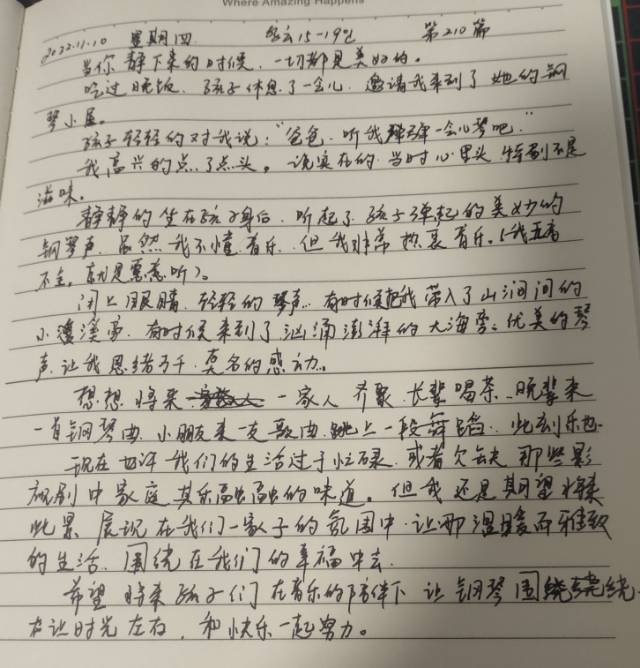 Where Amazing Happens
2022.11.10 星期四 多云15-19℃ 第210篇
当你静下来的时候，一切都是美好的。
吃过晚饭，孩子休息了一会儿，邀请我来到了她的钢
琴小屋。
孩子轻轻的对我说：“爸爸，听我弹弹一会儿琴吧。”
我高兴的点了点头。说实在的，当时心里头，特别不是
滋味。
静静的坐在孩子身后，听起了孩子弹起的美妙的
钢琴声，虽然我不懂音乐，但我非常热衷音乐。（我五音
不全，就是愿意听）。
闭上眼睛，轻轻的琴声，有时候把我带入了山涧间的
小溪旁，有时候来到了汹涌澎湃的大海旁；优美的琴
声，让我思绪万千，莫名的感动。
想想将来，一家人齐聚，长辈喝茶，晚辈来
一首钢琴曲，小朋友来一支歌曲，跳上一段舞蹈，此刻乐也
现在也许我们的生活过于忙碌，或者欠缺那些影
视剧中家庭其乐融融的味道。但我还是期望将来
此景展现在我们一家子的氛围中，让那温暖而雅致
的生活，围绕在我们的幸福中去。
希望将来孩子们在音乐的陪伴下，让钢琴围绕绕
在让时光左右，和快乐一起努力。